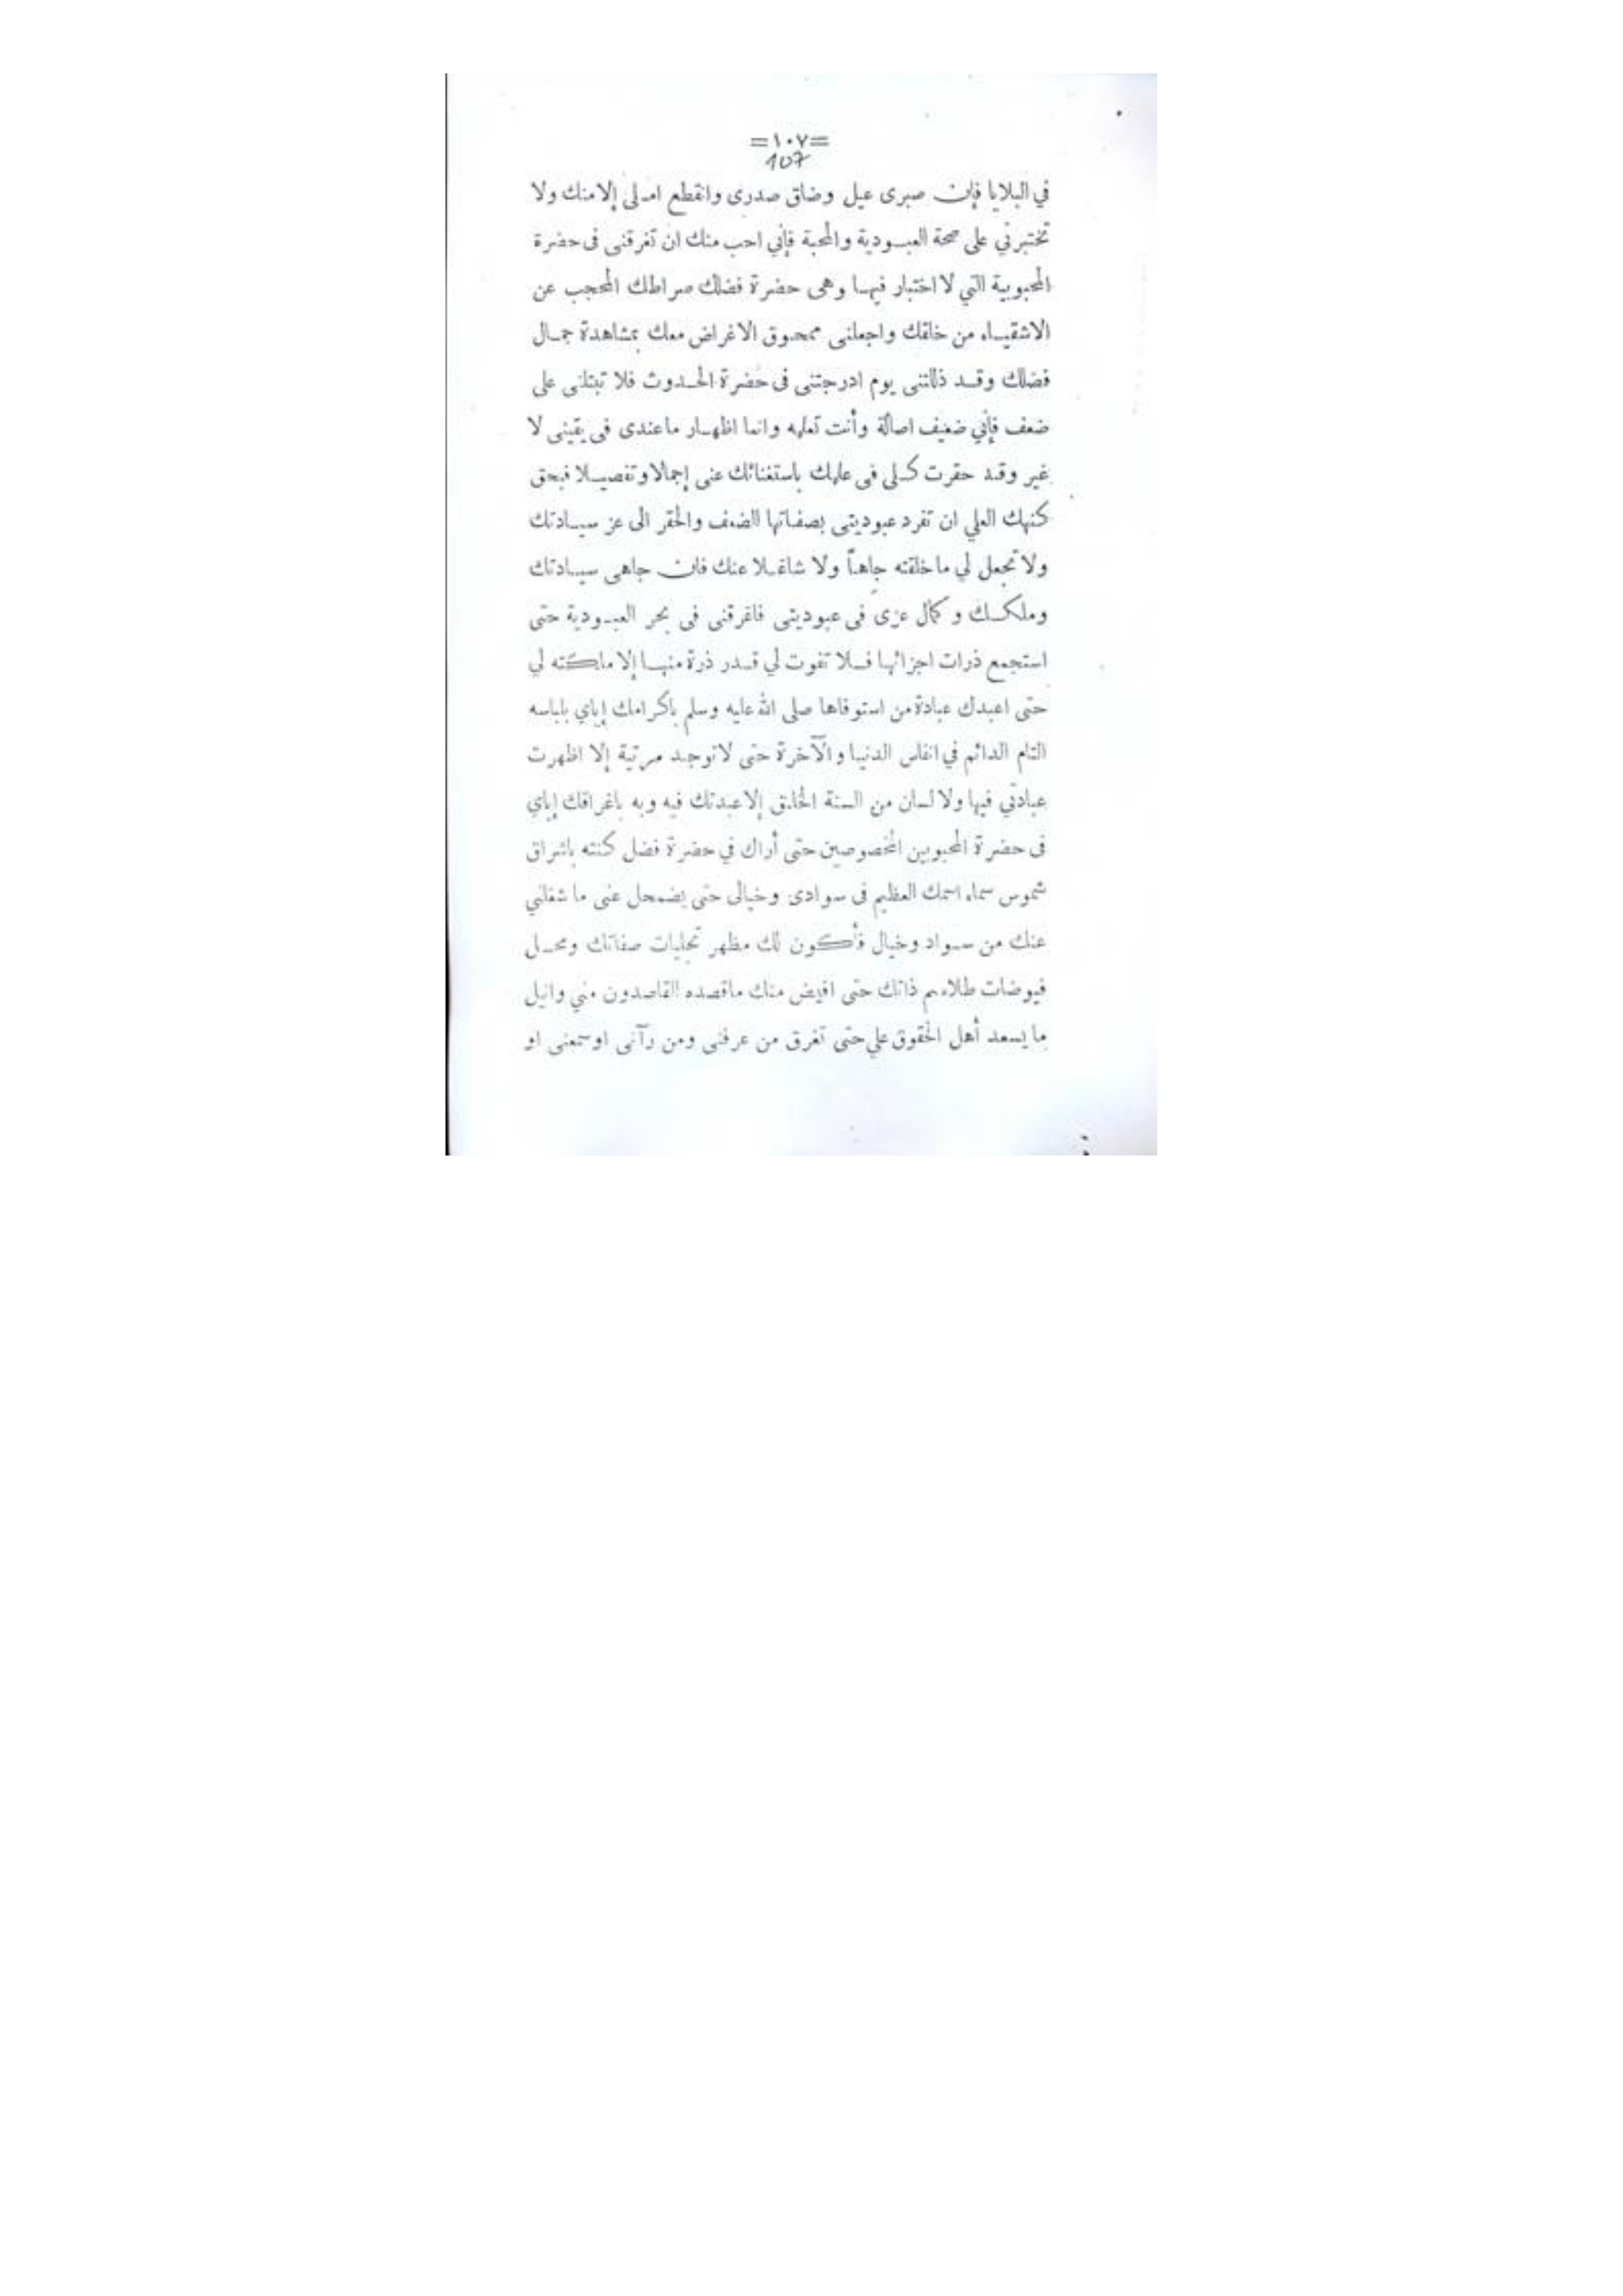 =١٠٧=
107
في البلايا فإن صبرى عيل وضاق صدرى وانقطع املى إلا منك ولا
تختبرني على صحة العبودية والمحبة فإني احب منك ان تغرقنى فى حضرة
المحبوبية التي لا اختبار فيها وهى حضرة فضلك صراطك المحجب عن
الاشقياء من خلقك واجعلنى ممحوق الاغراض معك بمشاهدة جمال
فضلك وقد ذللتنى يوم ادرجتنى فى حضرة الحدوث فلا تبتلنى على
ضعف فإني ضعيف اصالة وأنت تعلمه وانما اظهار ما عندى فى يقينى لا
غير وقد حقرت كلى فى علمك باستغنائك عنى إجمالا وتفصيلا فبحق
كنهك العلي ان تفرد عبوديتى بصفاتها الضعف والحقر الى عز سيادتك
ولا تجعل لي ما خلقته جاهاً ولا شاغلا عنك فان جاهى سيادتك
وملكك وكمال عزى فى عبوديتى فاغرقنى فى بحر العبودية حتى
استجمع ذرات اجزائها فلا تفوت لي قدر ذرة منها إلا ملكته لي
حتى اعبدك عبادة من استوفاها صلى الله عليه وسلم باكرامك إياي بلباسه
التام الدائم في انفاس الدنيا والآخرة حتى لا توجد مرتبة إلا اظهرت
عبادتي فيها ولا لسان من السنة الخلق إلا عبدتك فيه وبه باغراقك إياي
فى حضرة المحبوبين المخصوصين حتى أراك في حضرة فضل كنته باشراق
شموس سماء اسمك العظيم فى سوادى وخيالى حتى يضمحل عنى ما شغلني
عنك من سواد وخيال فأكون لك مظهر تجليات صفاتك ومحل
فيوضات طلاسم ذاتك حتى افيض منك ماقصده القاصدون مني وانيل
ما يسعد أهل الحقوق علي حتى تغرق من عرفنى ومن رآنى او سمعنى او